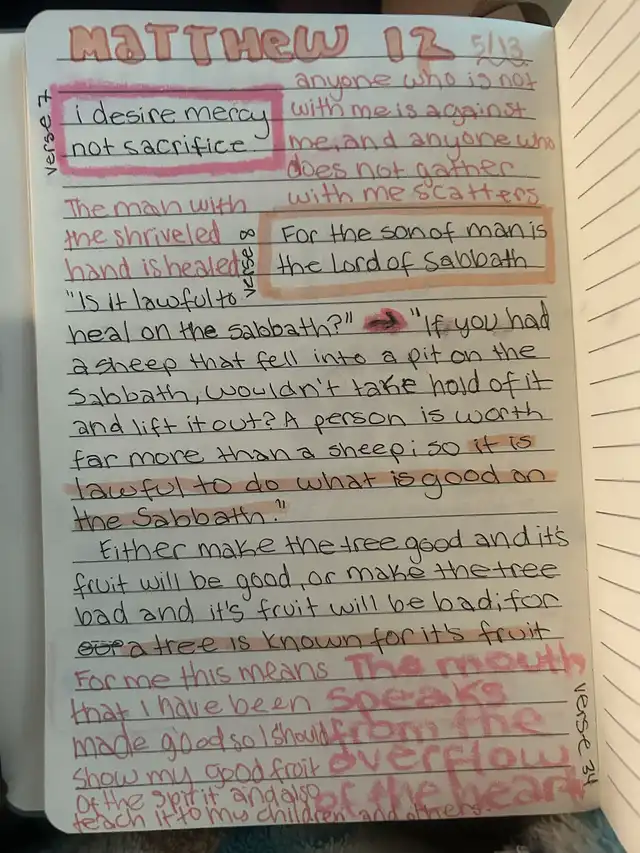 Matthew 12 5/13
verse 7
i desire mercy
not sacrifice.
anyone who is not
with me is against
me, and anyone who
does not gather
with me scatters
The man with
the shriveled
hand is healed
verse 8
For the son of man is
the Lord of Sabbath
"Is it lawful to
heal on the Sabbath?" → "If you had
a sheep that fell into a pit on the
Sabbath, wouldn't take hold of it
and lift it out? A person is worth
far more than a sheep; so it is
lawful to do what is good on
the Sabbath."
Either make the tree good and it's
fruit will be good, or make the tree
bad and it's fruit will be bad; for
a tree is known for it's fruit
For me this means
that I have been
made good so I should
show my good fruit
of the spirit and also
teach it to my children and others.
The mouth
speaks
from the
overflow
of the heart
verse 34